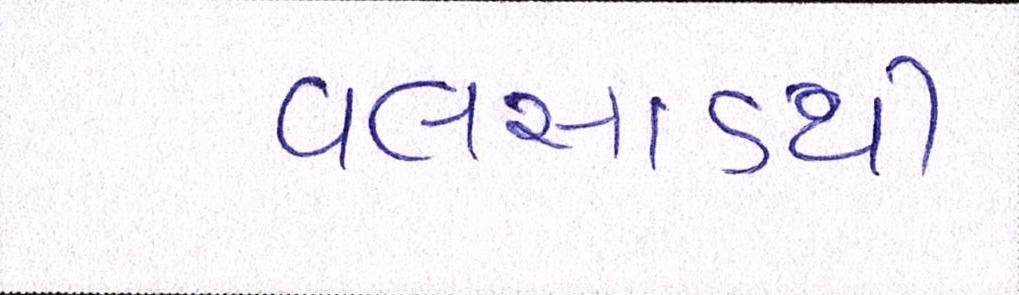 વલસાડથી